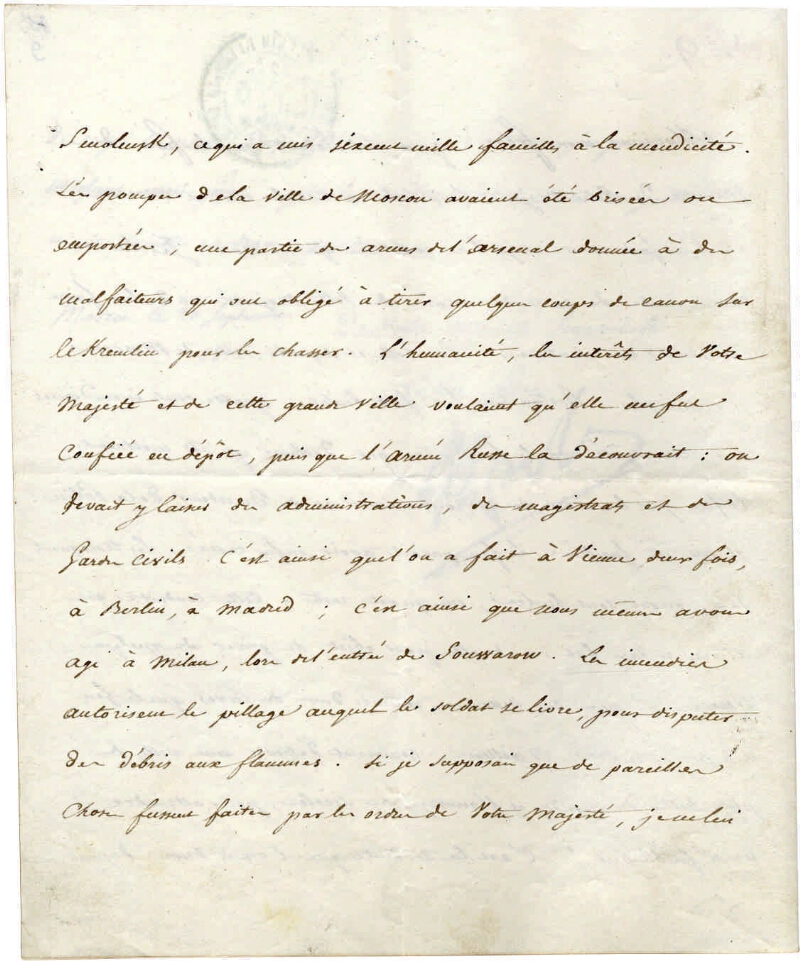 Smolensk, ce qui a mis six cent mille familles à la mendicité.
Les pompes de la ville de Moscou avaient été brisées ou
emportées, une partie des armes de l'arsenal donnée à des
malfaiteurs qui ont obligé à tirer quelques coups de canon sur
le Kremlin pour les chasser. L'humanité, les intérêts de Votre
Majesté et de cette grande Ville voulaient qu'elle me fut
confiée en dépôt, puisque l'armée Russe la découvrait : on
devait y laisser des administrations, des magistrats et des
Gardes Civils. C'est ainsi que l'on a fait à Vienne deux fois,
à Berlin, à Madrid ; c'est ainsi que nous mêmes avons
agi à Milan, lors de l'entrée de Souwarow. Les incendies
autorisent le pillage auquel le soldat se livre, pour disputer
des débris aux flammes. Si je supposais que de pareilles
choses fussent faites par les ordres de Votre Majesté, je ne lui